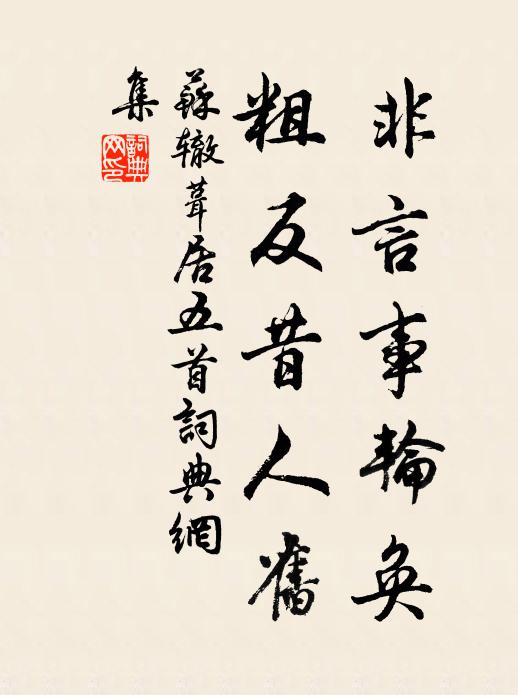 非言事輪奐
粗反昔人舊
蘇辙葺居五首詞典網
集
詞典
网印